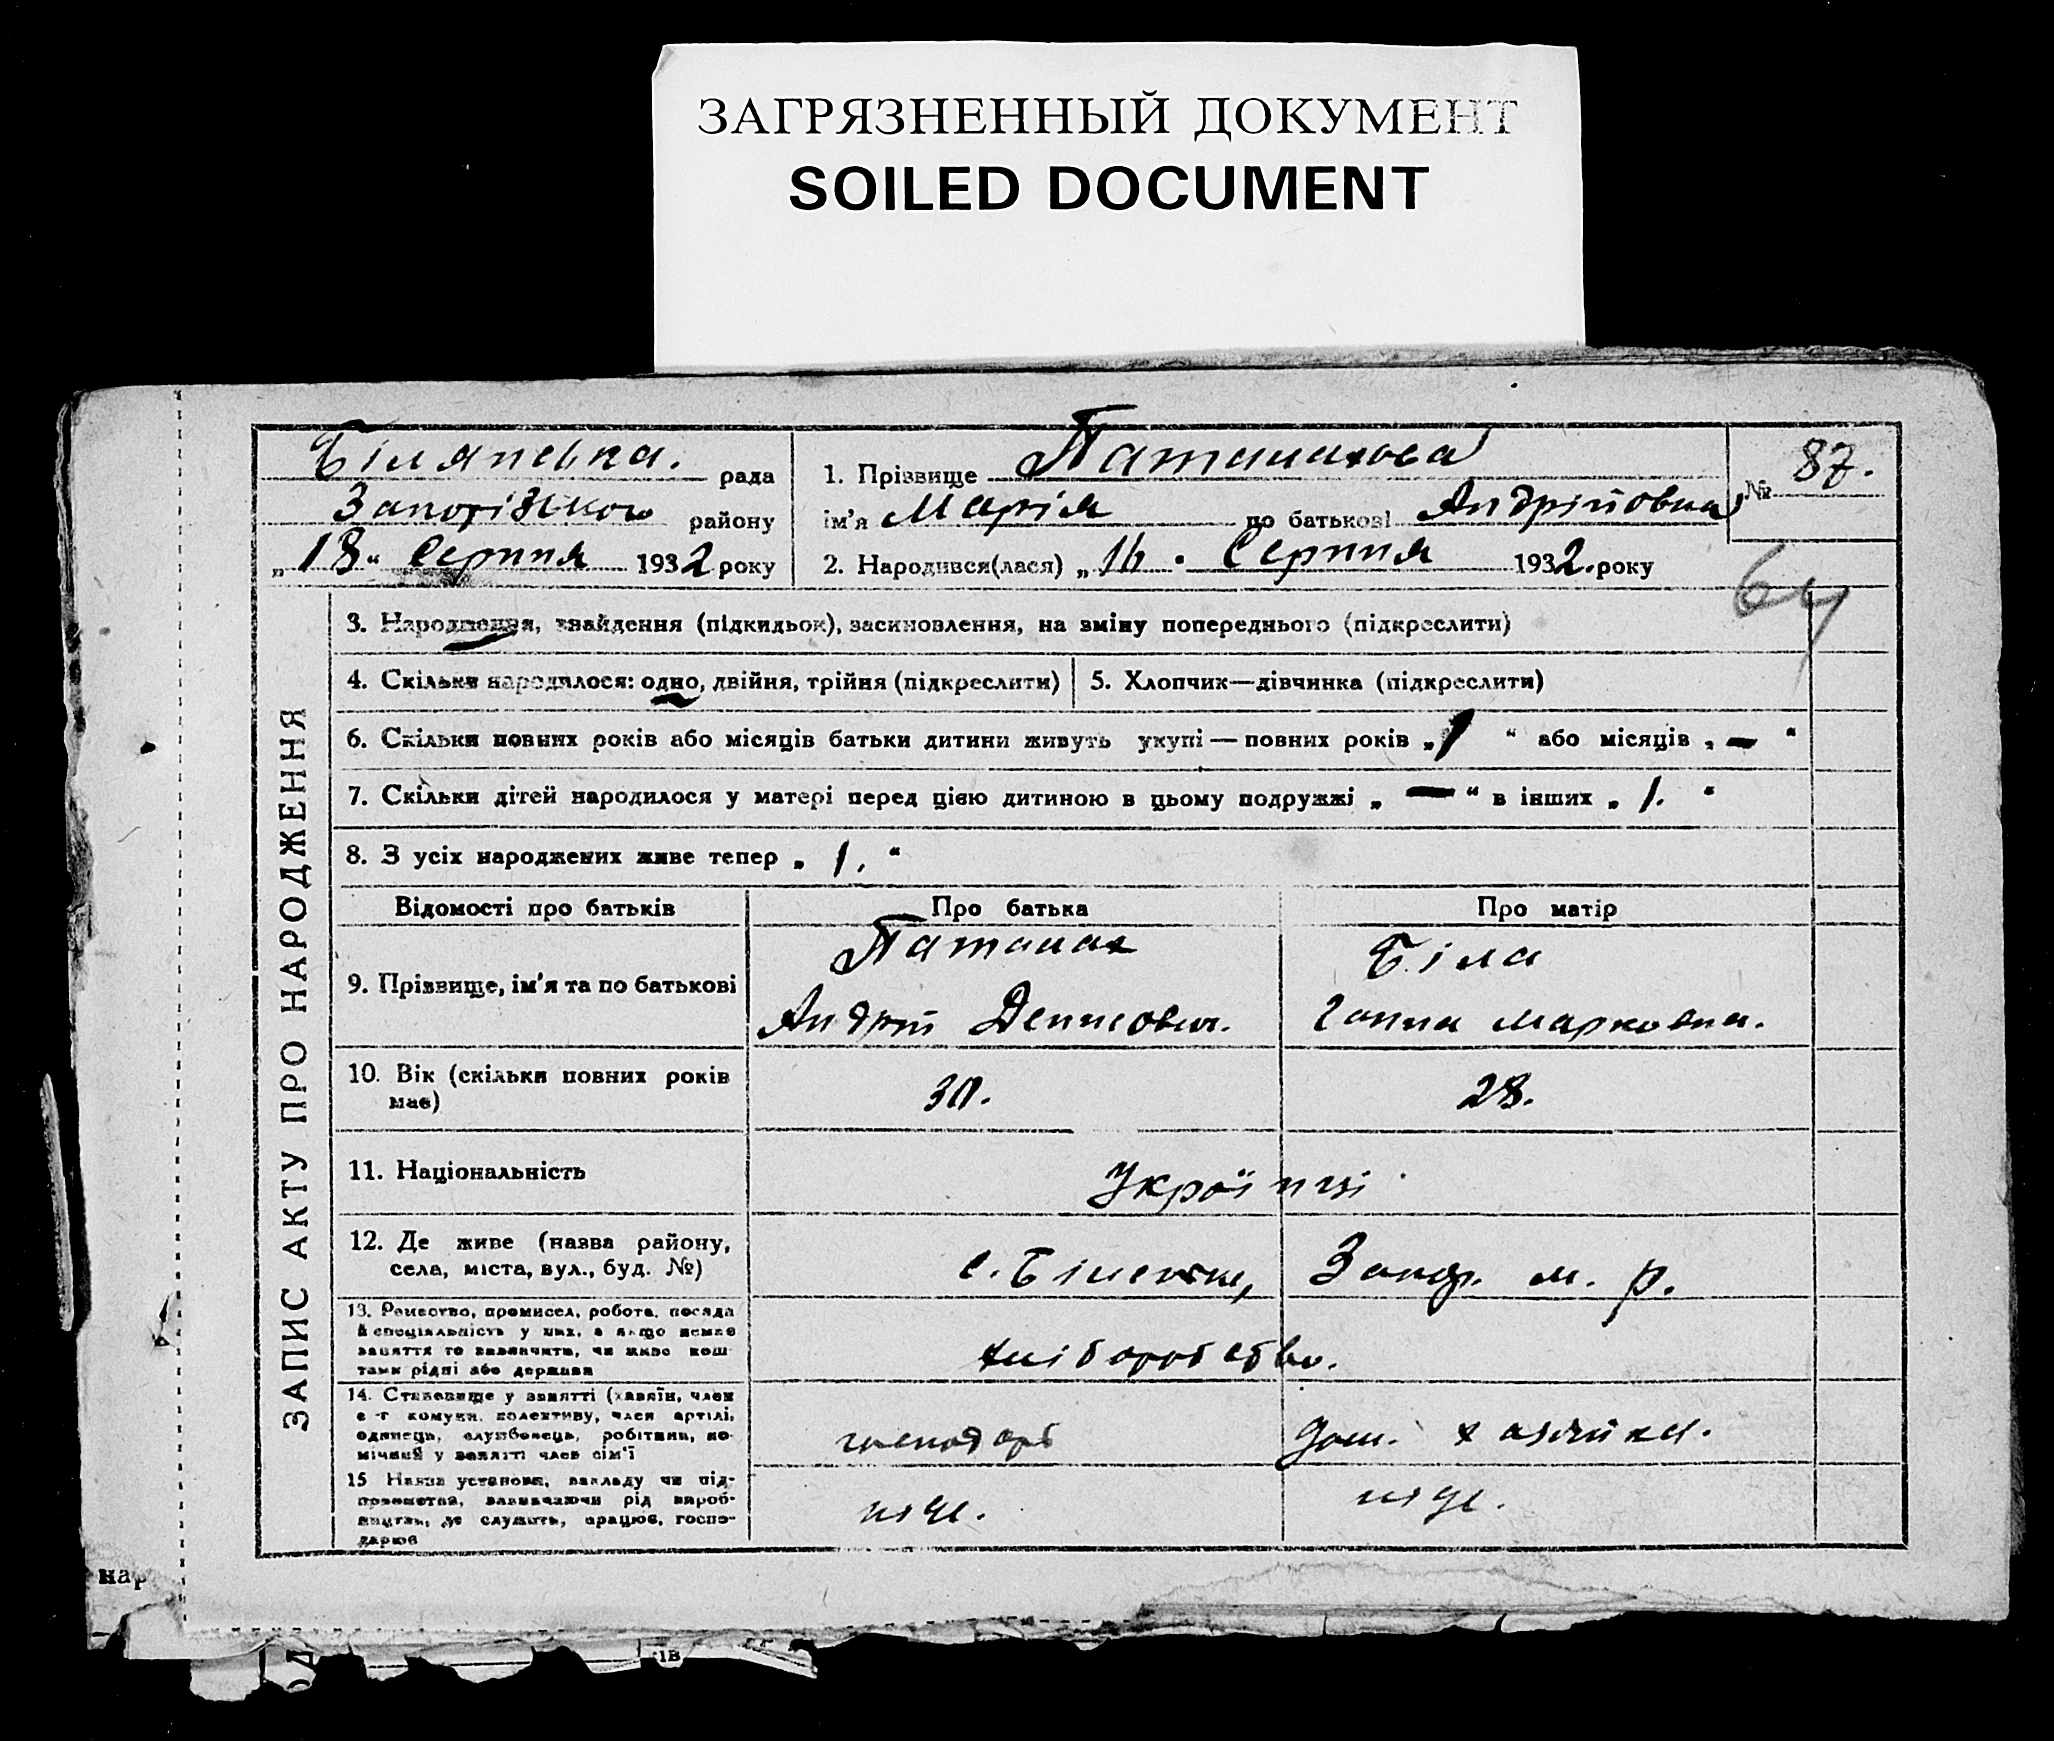 ЗАГРЯЗНЕННЫЙ ДОКУМЕНТ
SOILED DOCUMENT
рада
району
„18“ Серпня 1932 року
1. Прізвище
ім'я Марія по батькові Андрійовна
2. Народився(лася) „16. Серпня 1932. року
№ 87.
64
ЗАПИС АКТУ ПРО НАРОДЖЕННЯ
3. Народження, знайдення (підкидьок), засиновлення, на зміну попереднього (підкреслити)
4. Скільки народилося: одно, двійня, трійня (підкреслити)
5. Хлопчик—дівчинка (підкреслити)
6. Скільки повних років або місяців батьки дитини живуть укупі — повних років „1“ або місяців „—“
7. Скільки дітей народилося у матері перед цією дитиною в цьому подружжі „—“ в інших „1.“
8. З усіх народжених живе тепер „1.“
Відомості про батьків
Про батька
Про матір
9. Прізвище, ім'я та по батькові
Біла
Андрій
Ганна Марковна.
10. Вік (скільки повних років
має)
30.
28.
11. Національність
Українці
12. Де живе (назва району,
села, міста, вул., буд. №)
с. м. р.
13. Ремество, промисел, робота, посада
й спеціяльність у них, а якщо немає
заняття то зазначити, чи живе кош-
тами рідні або держави
хліборобство.
14. Становище у занятті (хазяїн, член
с-г комуни, колективу, член артілі,
одинець, службовець, робітник, по-
мічний у занятті член сім'ї
господарь
дом. хазяйка.
15 Назва установи, закладу чи під-
приємства, зазначаючи рід вироб-
ництва, де служить, працює, госпо-
дарює
нар
ів